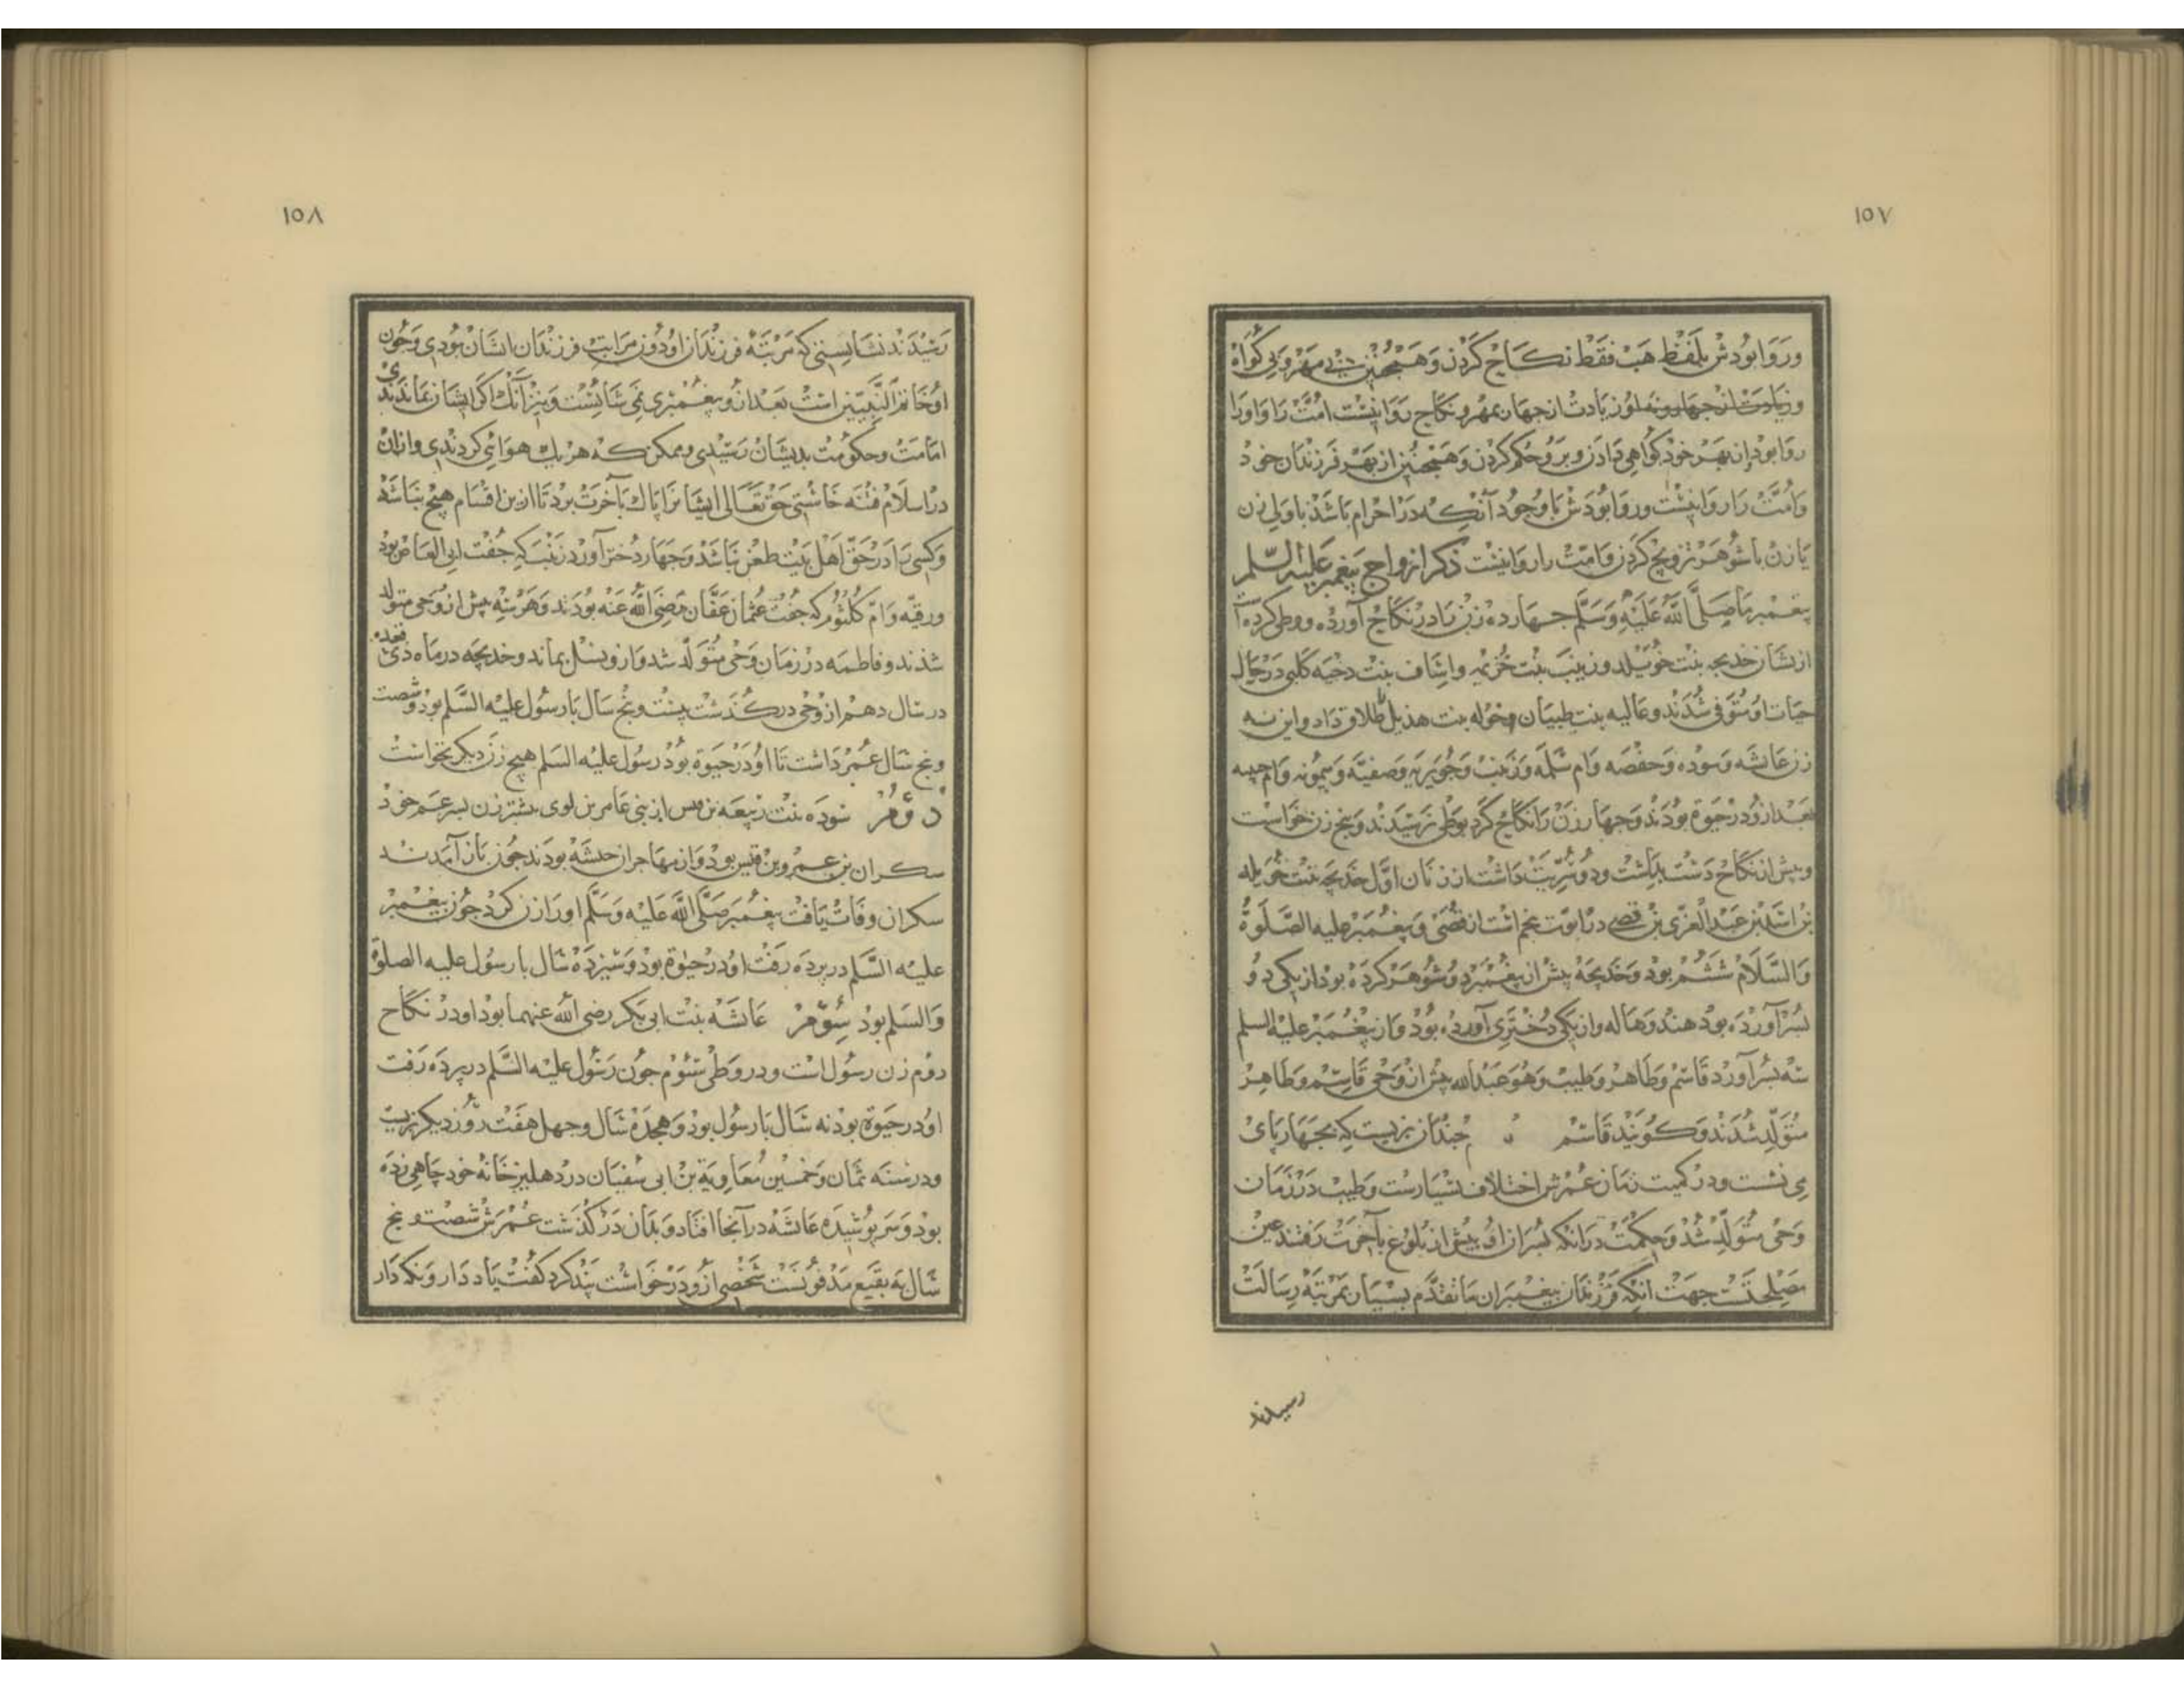 ۱۵۷
وروا بودش بلفظ هبه فقط نکاح کردن و همچنین بی مهر و بی کواه
وزیادت از چهار زن و نه او زیادت از چهار بمهر و نکاح روا نیست امت را و او را
روا بود از بهر خود کواهی دادن و بر و حکم کردن و همچنین از بهر فرزندان خود
و امت را روا نیست و روا بودش با وجود آنکه در احرام باشد با ولی زن
یا زن با شوهر تزویج کردن و امت را روا نیست ذکر ازواج پیغمبر علیه السلم
پیغمبر ما صلی الله علیه و سلم چهارده زن را در نکاح آورده و وطی کرده
ازیشان خدیجه بنت خویلد و زینب بنت خزیمه و اساف بنت دحیه کلبی در حال
حیات او متوفی شدند و عالیه بنت طبیان و خوله بنت هذیل طلاق داد و این نه
زن عایشه و سوده و حفصه و ام سلمه و زینب و جویریه و صفیه و میمونه و ام حبیبه
بعد ازو در حیوة بودند و چهار زن را نکاح کرد بوطی نرسیدند و پنج زن خواست
و پیش از نکاح دست بداشت و دو سریت داشت از زنان اول خدیجه بنت خویلد
بن اسد بن عبد العزی بن قصی در ابوت پنجم است از قصی و پیغمبر علیه الصلوة
والسلام ششم بود و خدیجه پیش از پیغمبر دو شوهر کرده بود از یکی دو
پسر آورده بود هند و هاله و از یکی دختری آورده بود و از پیغمبر علیه السلم
سه پسر آورد قاسم و طاهر و طیب و هو عبد الله پیش از وحی قاسم و طاهر
متولد شدند و کویند قاسم چندان بزیست که بچهارپای
می نشست و در کمیت زمان عمرش اختلاف بسیارست و طیب در زمان
وحی متولد شد و حکمت در آنکه پسران او پیش از بلوغ بآخرت رفتند عین
مصلحتست جهت آنکه فرزندان پیغمبران ما تقدم بسیار بمرتبه رسالت
رسیدند
۱۵۸
رسیدند نشایستی که مرتبه فرزندان او دون مراتب فرزندان ایشان بودی و چون
او خاتم النبیین است بعد از و پیغمبری نمی شایست و نیز آنک اکر ایشان بماندندی
امامت و حکومت بدیشان رسیدی و ممکن که هر یک هوائی کردندی و ازان
در اسلام فتنه خاستی حق تعالی ایشانرا پاک بآخرت برد تا ازین اقسام هیچ نباشد
و کسی را در حق اهل بیت طعن نباشد و چهار دختر آورد زینب که جفت ابی العاص بود
ورقیه و ام کلثوم که جفت عثمان عفان رضی الله عنه بودند و هر سه پیش از وحی متولد
شدند و فاطمه در زمان وحی متولد شد و ازو نسل بماند و خدیجه در ماه ذی قعده
در سال دهم از وحی درکذشت بیست و پنج سال با رسول علیه السلم بود و شصت
و پنج سال عمر داشت تا او در حیوة بود رسول علیه السلم هیچ زن دیکر نخواست
دوم سوده بنت زمعه بن قیس از بنی عامر بن لوی پیشتر زن پسر عم خود
سکران بن عمرو بن قیس بود و از مهاجران حبشه بودند چون باز آمدند
سکران وفات یافت پیغمبر صلی الله علیه و سلم او را زن کرد چون پیغمبر
علیه السلم در پرده رفت او در حیوة بود و سیزده سال با رسول علیه الصلوة
والسلم بود سوم عایشه بنت ابی بکر رضی الله عنهما بود او در نکاح
دوم زن رسول است و در وطی سوم چون رسول علیه السلم در پرده رفت
او در حیوة بود نه سال با رسول بود و هجده سال و چهل هفت روز دیکر بزیست
و در سنه ثمان و خمسین معاویة بن ابی سفیان در دهلیز خانه خود چاهی زده
بود و سر پوشیده عایشه در آنجا افتاد و بدان درکذشت عمرش شصت و پنج
سال به بقیع مدفونست شخصی ازو درخواست پند کرد کفت یاد دار و نکه دار